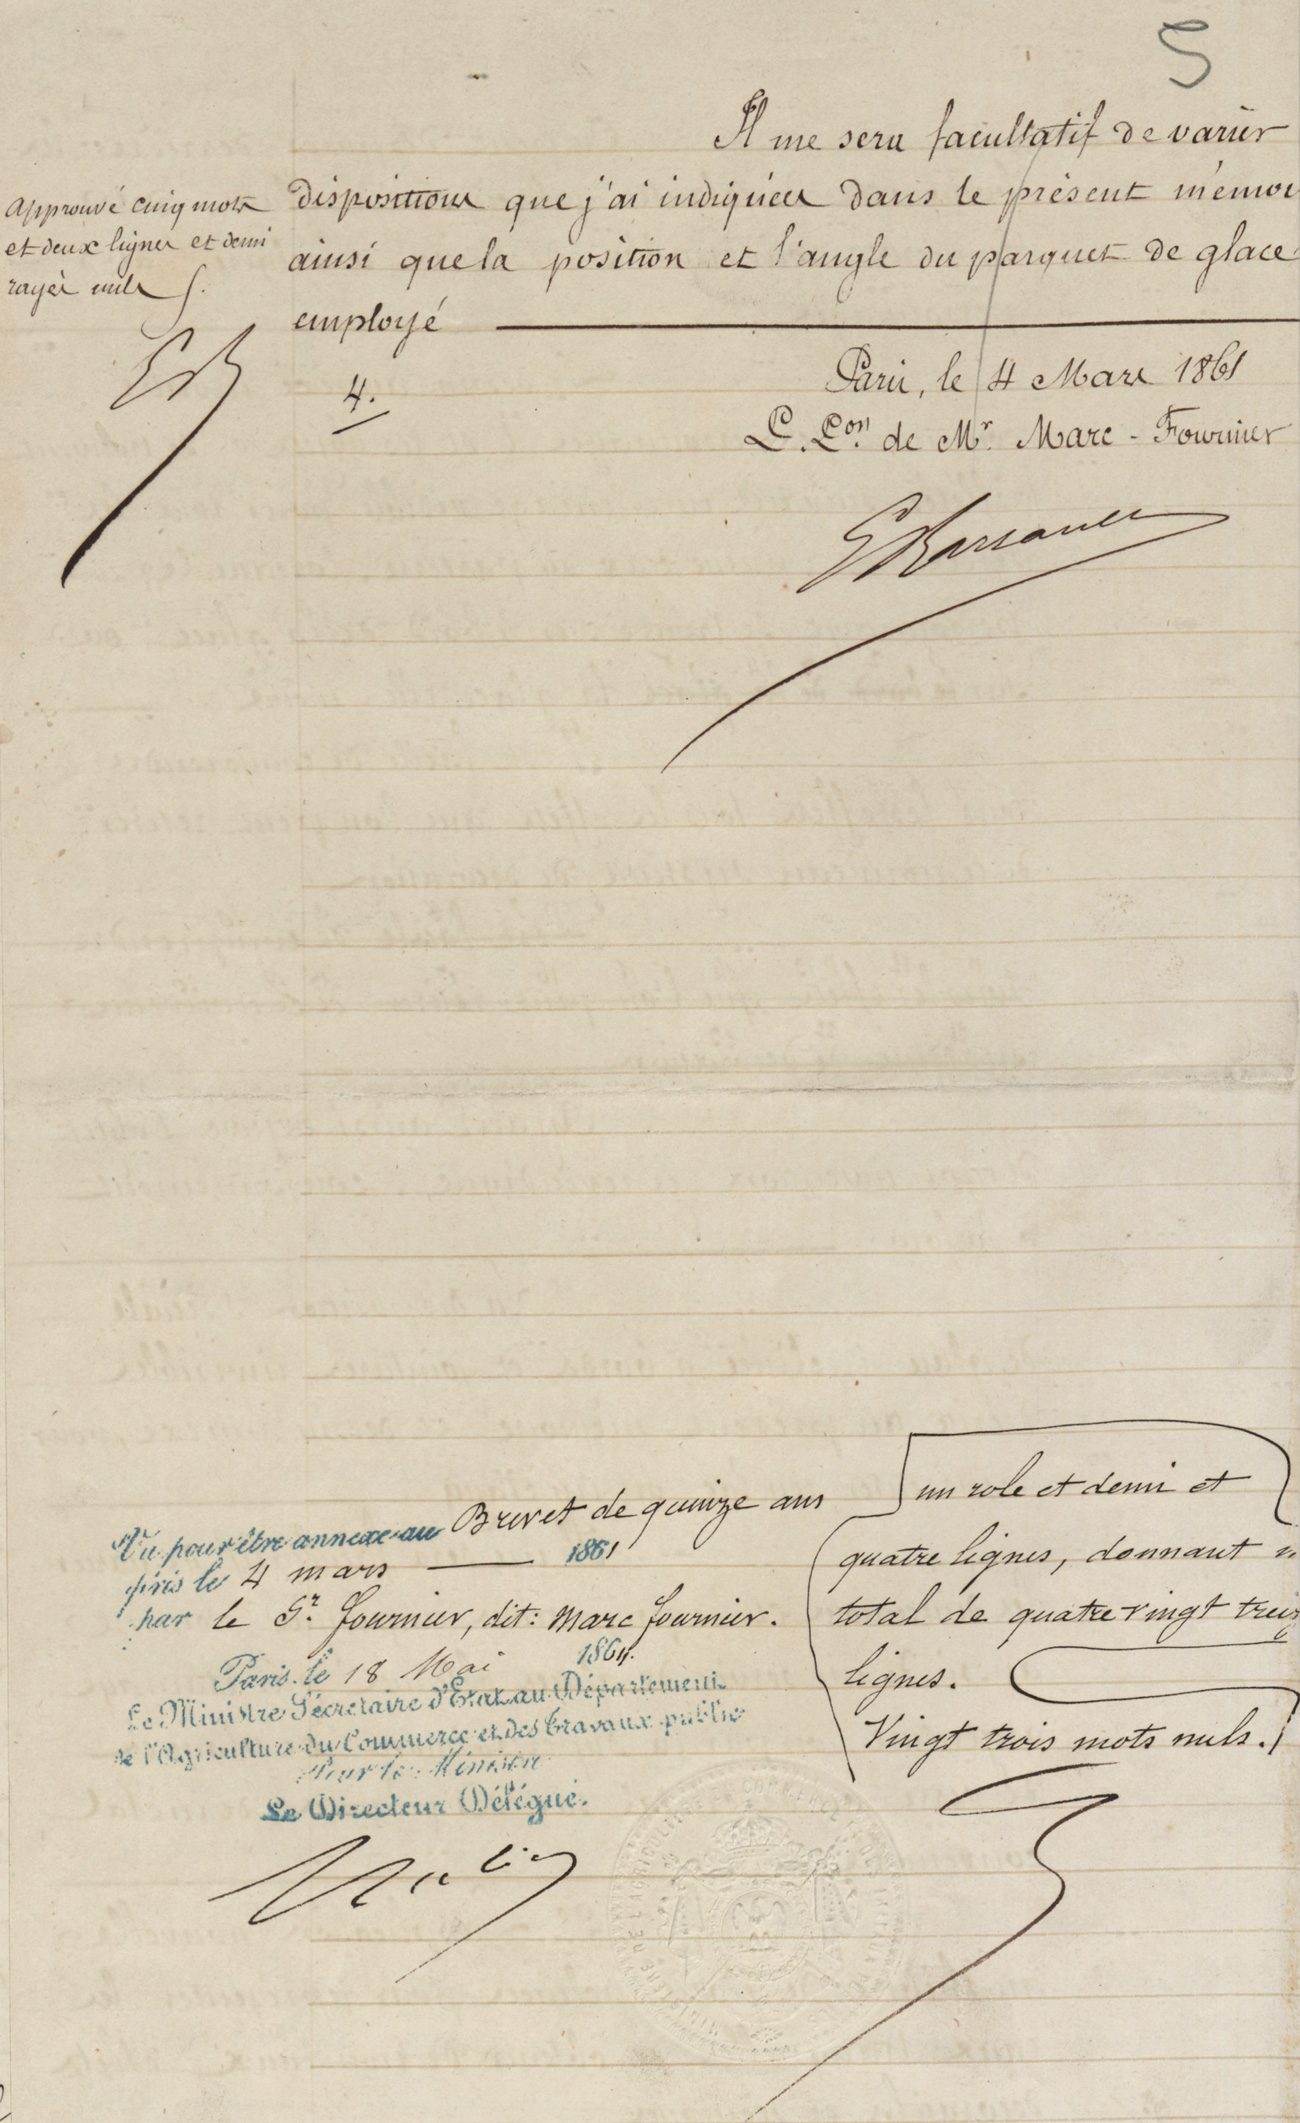 5
Il me sera facultatif de varier
dispositions que j'ai indiquées dans le présent mémoi
ainsi que la position et l'angle du parquet de glace
employé
approuvé cinq mots
et deux lignes et demi
rayés nuls
4.
Paris, le 4 Mars 1861
P. P.on de Mr. Marc - Fournier
Vu pour être annexé au Brevet de quinze ans
pris le 4 mars 1861
par le Sr. Fournier, dit: Marc Fournier.
Paris, le 18 Mai 1861.
Le Ministre Secrétaire d'Etat au Département
de l'Agriculture du Commerce et des Travaux publics
Pour le Ministre
Le Directeur Délégué.
un role et demi et
quatre lignes, donnant
total de quatre vingt treiz
lignes.
Vingt trois mots nuls.